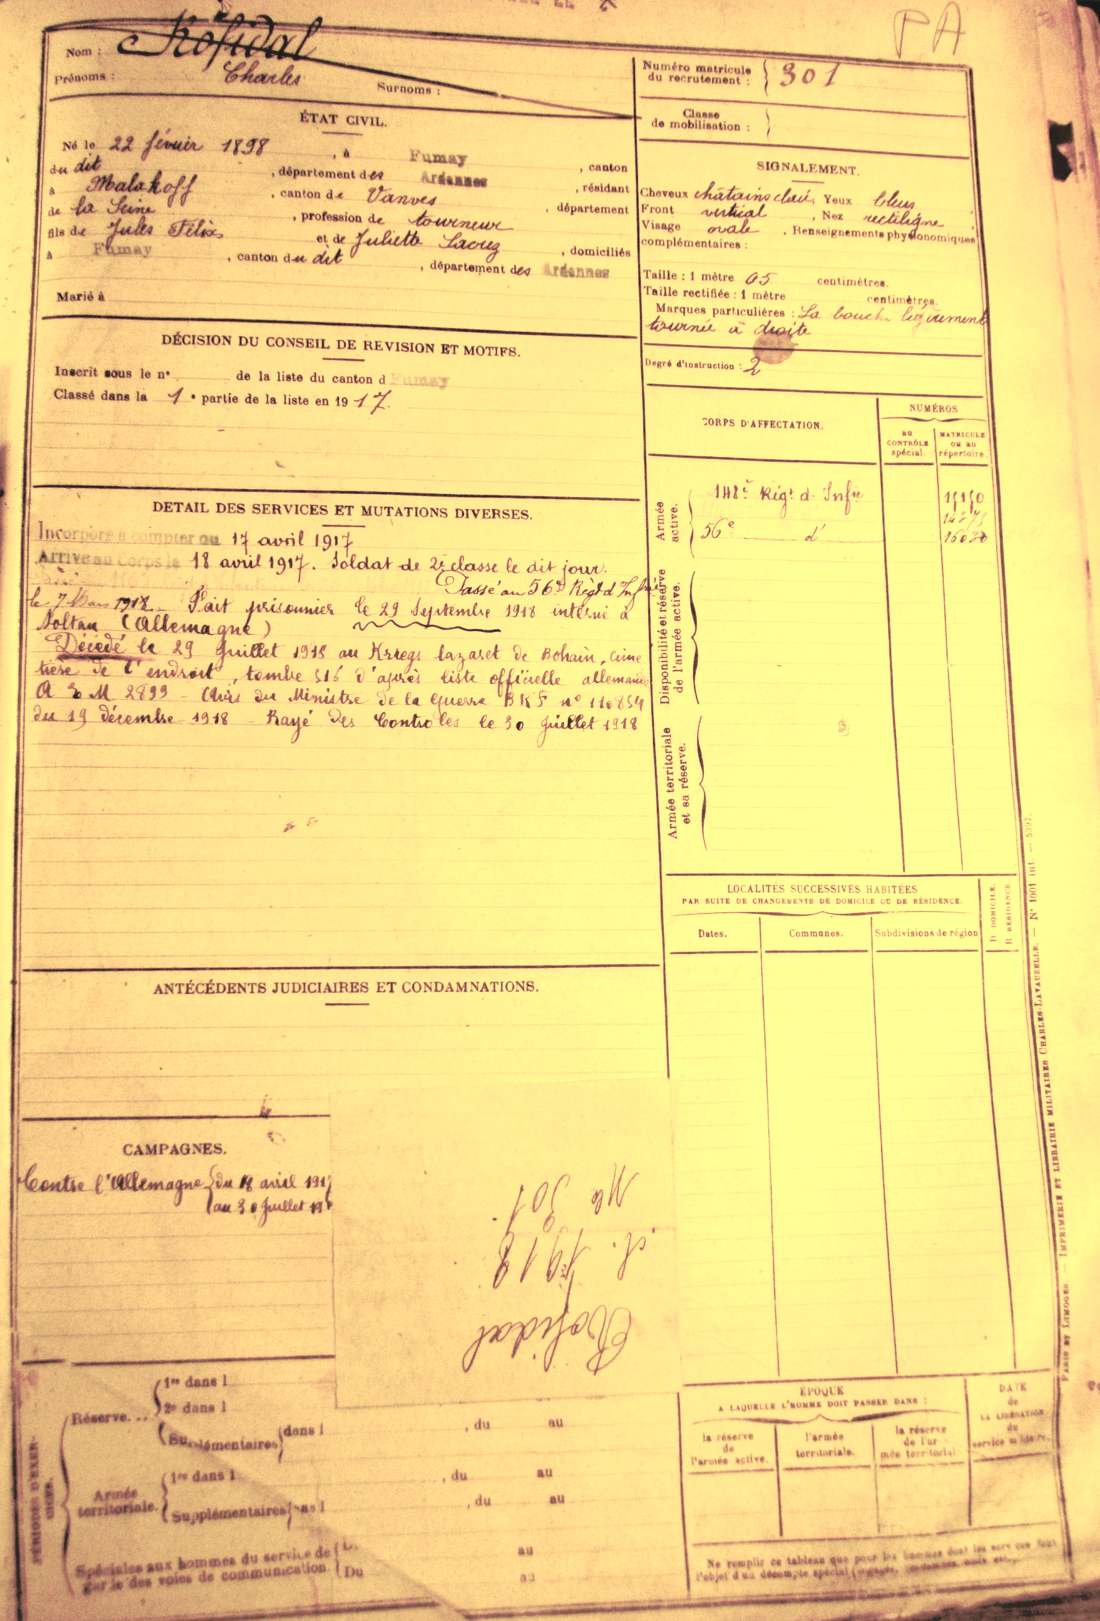 PA
Nom : Rofidal
Prénoms : Charles Surnoms :
Numéro matricule du recrutement : 301
Classe de mobilisation :
ÉTAT CIVIL.
Né le 22 février 1898, à Fumay, canton
du dit, département des Ardennes, résidant
à Malakoff, canton de Vanves, département
de la Seine, profession de tourneur
fils de Jules Félix et de Juliette, domiciliés
à Fumay, canton du dit, département des Ardennes
Marié à
SIGNALEMENT.
Cheveux châtains clairs, Yeux bleus
Front vertical, Nez rectiligne
Visage ovale, Renseignements physionomiques
complémentaires :
Taille : 1 mètre 05 centimètres.
Taille rectifiée : 1 mètre centimètres.
Marques particulières : La bouche légèrement
tournée à droite
Degré d'instruction : 2
DÉCISION DU CONSEIL DE REVISION ET MOTIFS.
Inscrit sous le n° de la liste du canton d Fumay
Classé dans la 1e partie de la liste en 1917.
CORPS D'AFFECTATION.
NUMÉROS
AU CONTRÔLE spécial.
MATRICULE OU AU répertoire.
Armée active.
148e Régt d' Infie
56e d°
Disponibilité et réserve de l'armée active.
Armée territoriale et sa réserve.
DETAIL DES SERVICES ET MUTATIONS DIVERSES.
Incorporé à compter du 17 avril 1917
Arrivé au Corps le 18 avril 1917. Soldat de 2e classe le dit jour.
Passé au 56e Régt d'Infie
le 7 Mars 1918. Fait prisonnier le 29 Septembre 1918 interné à
Soltau (Allemagne)
Décédé le 29 Juillet 1918 au Kriegs lazaret de Bohain, cime
tière de l'endroit, tombe 516 d'après liste officielle allemande
2899 - Avis du Ministre de la Guerre
du 19 décembre 1918 - Rayé des Contrôles le 30 Juillet 1918
LOCALITÉS SUCCESSIVES HABITÉES
PAR SUITE DE CHANGEMENTS DE DOMICILE OU DE RÉSIDENCE.
Dates. Communes. Subdivisions de région
D DOMICILE.
R RÉSIDENCE
ANTÉCÉDENTS JUDICIAIRES ET CONDAMNATIONS.
CAMPAGNES.
Contre l'Allemagne du 18 avril 1917
au 30 Juillet
Rofidal
cl. 1918
Mle 301
PÉRIODES D'EXERCICES.
Réserve...
1re dans l
2e dans l
Supplémentaires dans l , du au
Armée territoriale.
1re dans l , du au
Supplémentaires dans l , du au
Spéciales aux hommes du service de au
garde des voies de communication. Du au
ÉPOQUE
A LAQUELLE L'HOMME DOIT PASSER DANS :
la réserve de l'armée active.
l'armée territoriale.
la réserve de l'armée territorial.
DATE de LA LIBÉRATION du service militaire.
PARIS ET LIMOGES. — IMPRIMERIE ET LIBRAIRIE MILITAIRES CHARLES-LAVAUZELLE. — N° 1001